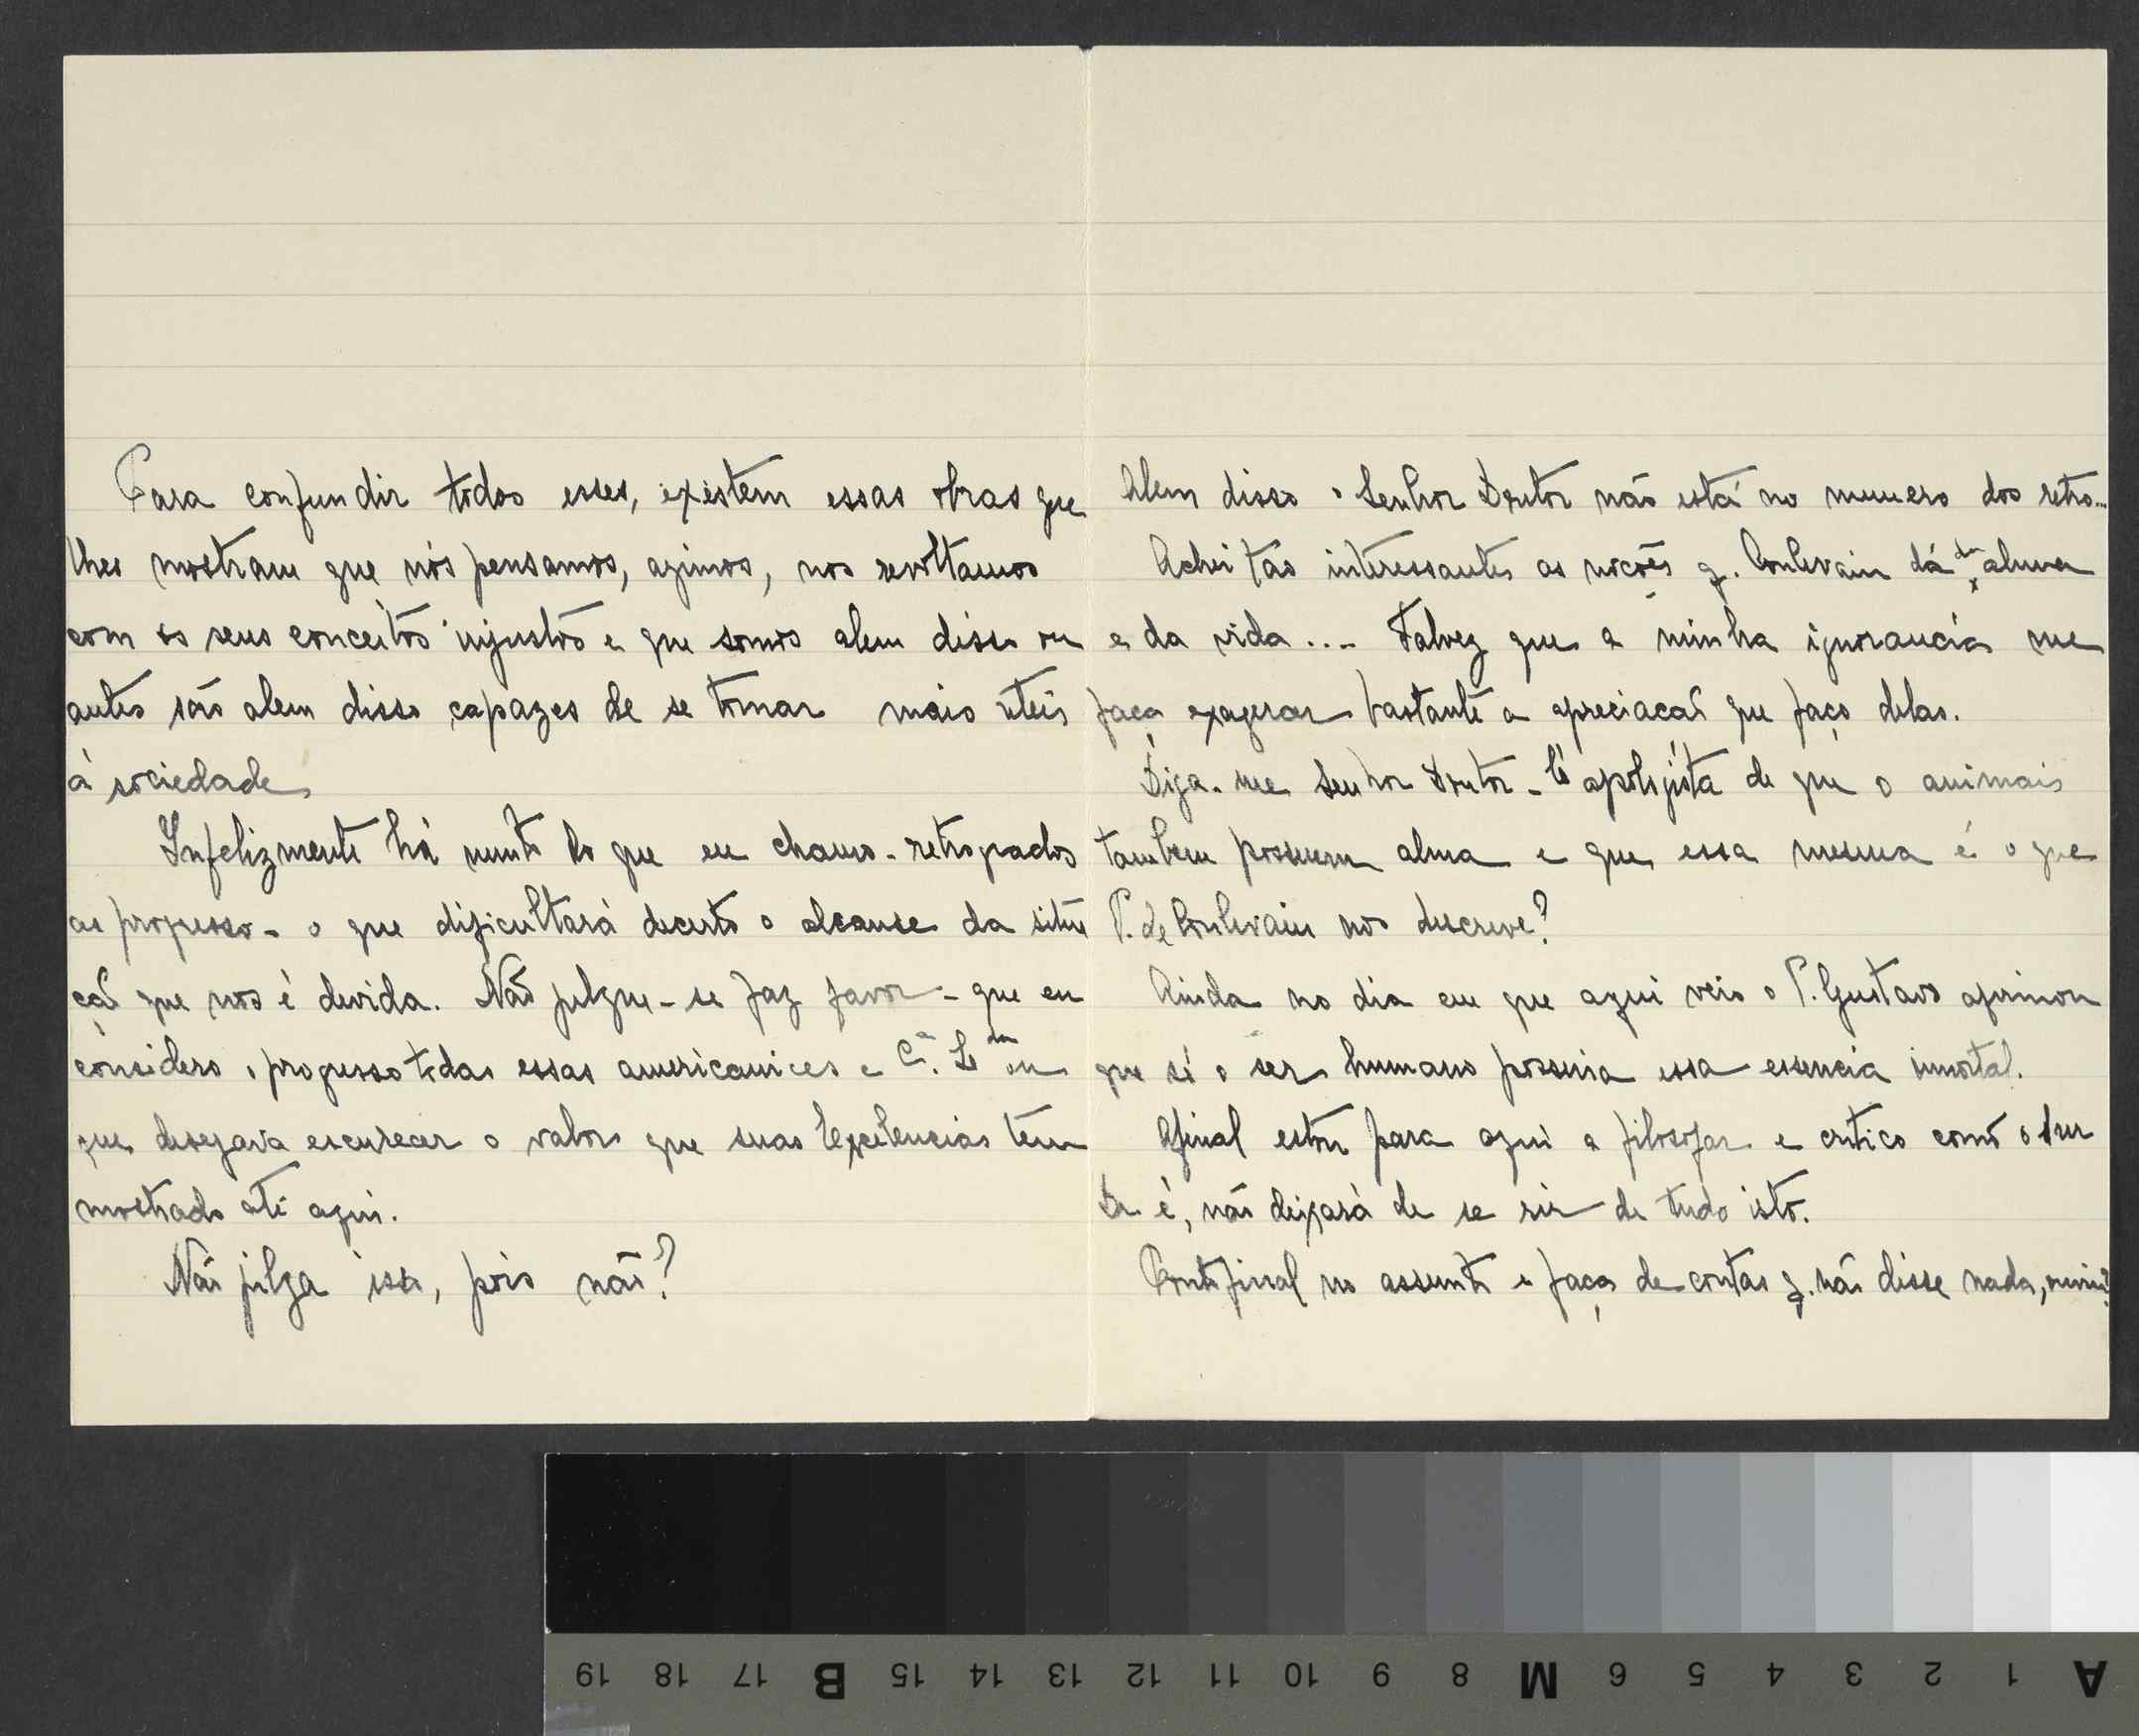 Para confundir todos esses, existem essas obras que
lhes mostram que nós pensamos, agimos, nos revoltamos
com os seus conceitos injustos e que somos alem disso ou
antes são alem disso capazes de se tornar mais uteis
á sociedade
Infelizmente há muito do que eu chamo - retrogados
ao progresso - o que dificultará decerto o alcanse da situa
ção que nos é devida. Não julgue - se faz favor - que eu
considero, progresso todas essas americanices e C.ª L.da ou
que desejava escurecer o valor que suas Excelencias têm
mostrado até aqui.
Não julga isso, pois não?
Alem disso o Senhor Doutor não está no numero dos retro...
Achei tão interessantes as noções q. Coulevain dá da alma
e da vida... Talvez que a minha ignorancia me
faça exagerar bastante a apreciacão que faço delas.
Diga-me Senhor Doutor - É apologista de que o animais
tambem possuem alma e que essa mesma é o que
P. de Coulevain nos descreve?
Ainda no dia em que aqui veio o P. Gustavo afirmou
que só o ser humano possuia essa esencia imortal.
Afinal estou para aqui a filosofar e critico como o Sur
Dr é, não deixará de se rir de tudo isto.
Ponto final no assunto e faça de contas q. não disse nada,
A 1 2 3 4 5 6 M 8 9 10 11 12 13 14 15 B 17 18 19